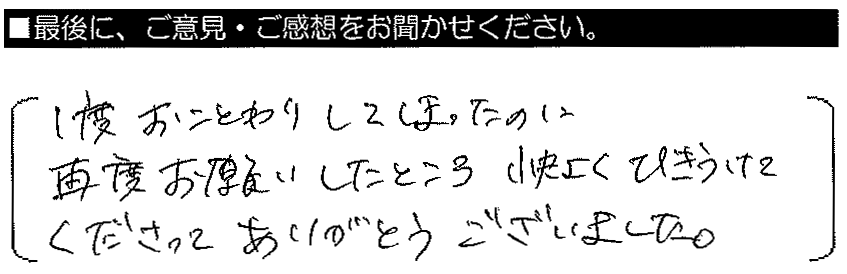 ■最後に、ご意見・ご感想をお聞かせください。
1度おことわりしてしまったのに
再度お願いしたところ快よくひきうけて
くださってありがとうございました。